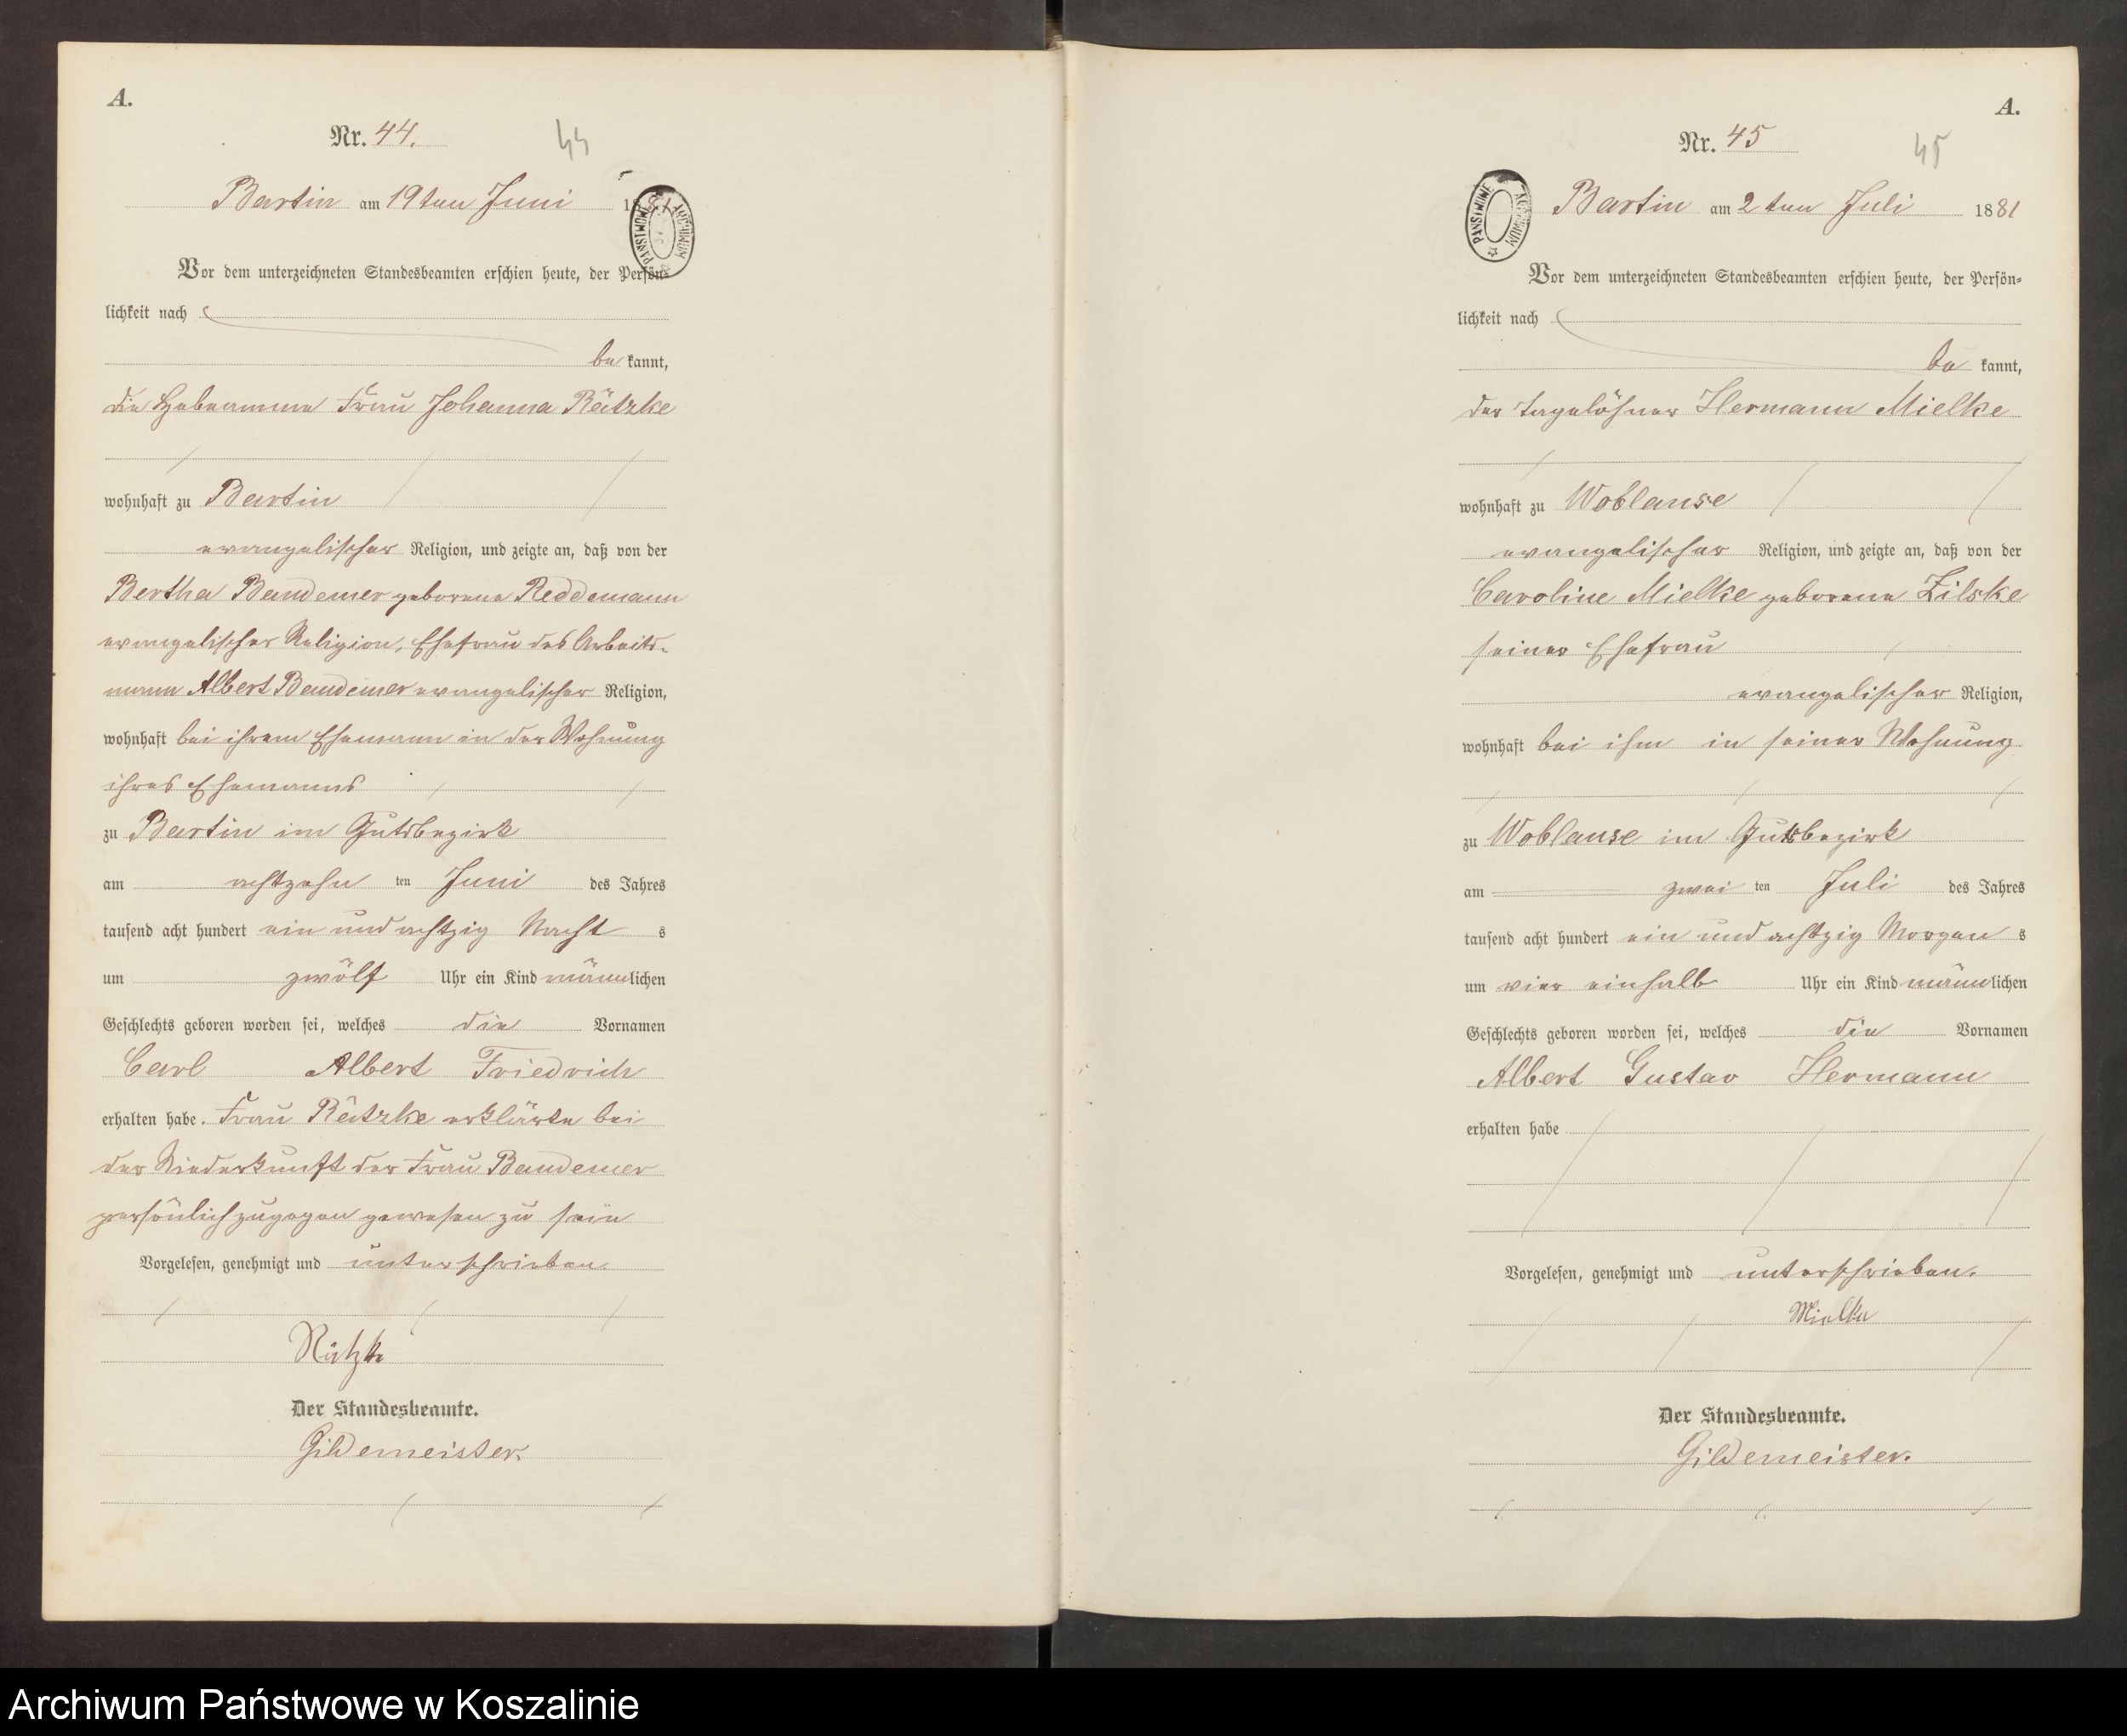 A.
Nr. 44.
44
Bartin am 19ten Juni 1881
PAŃSTWOWE ARCHIWUM
Vor dem unterzeichneten Standesbeamten erschien heute, der Persön-
lichkeit nach
be kannt,
die Hebeamme Frau Johanna Rätzke
wohnhaft zu Bartin
evangelischer Religion, und zeigte an, daß von der
Bertha Bandemer geborene Reddemann
evangelischer Religion, Ehefrau des Arbeits-
mann Albert Bandemer evangelischer Religion,
wohnhaft bei ihrem Ehemann in der Wohnung
ihres Ehemanns
zu Bartin im Gutsbezirk
am achtzehn ten Juni des Jahres
tausend acht hundert ein und achtzig Nacht s
um zwölf Uhr ein Kind männlichen
Geschlechts geboren worden sei, welches die Vornamen
Carl Albert Friedrich
erhalten habe. Frau Rätzke erklärte bei
der Niederkunft der Frau Bandemer
persönlich zugegen gewesen zu sein
Vorgelesen, genehmigt und unterschrieben.
Rätzke
Der Standesbeamte.
Gildemeister.
A.
Nr. 45
45
PAŃSTWOWE ARCHIWUM
Bartin am 2ten Juli 1881
Vor dem unterzeichneten Standesbeamten erschien heute, der Persön-
lichkeit nach
be kannt,
der Tagelöhner Hermann Mielke
wohnhaft zu Woblanse
evangelischer Religion, und zeigte an, daß von der
Caroline Mielke geborene Zilske
seiner Ehefrau
evangelischer Religion,
wohnhaft bei ihm in seiner Wohnung
zu Woblanse im Gutsbezirk
am zwei ten Juli des Jahres
tausend acht hundert ein und achtzig Morgen s
um vier einhalb Uhr ein Kind männlichen
Geschlechts geboren worden sei, welches die Vornamen
Albert Gustav Hermann
erhalten habe
Vorgelesen, genehmigt und unterschrieben.
Mielke
Der Standesbeamte.
Gildemeister.
Archiwum Państwowe w Koszalinie